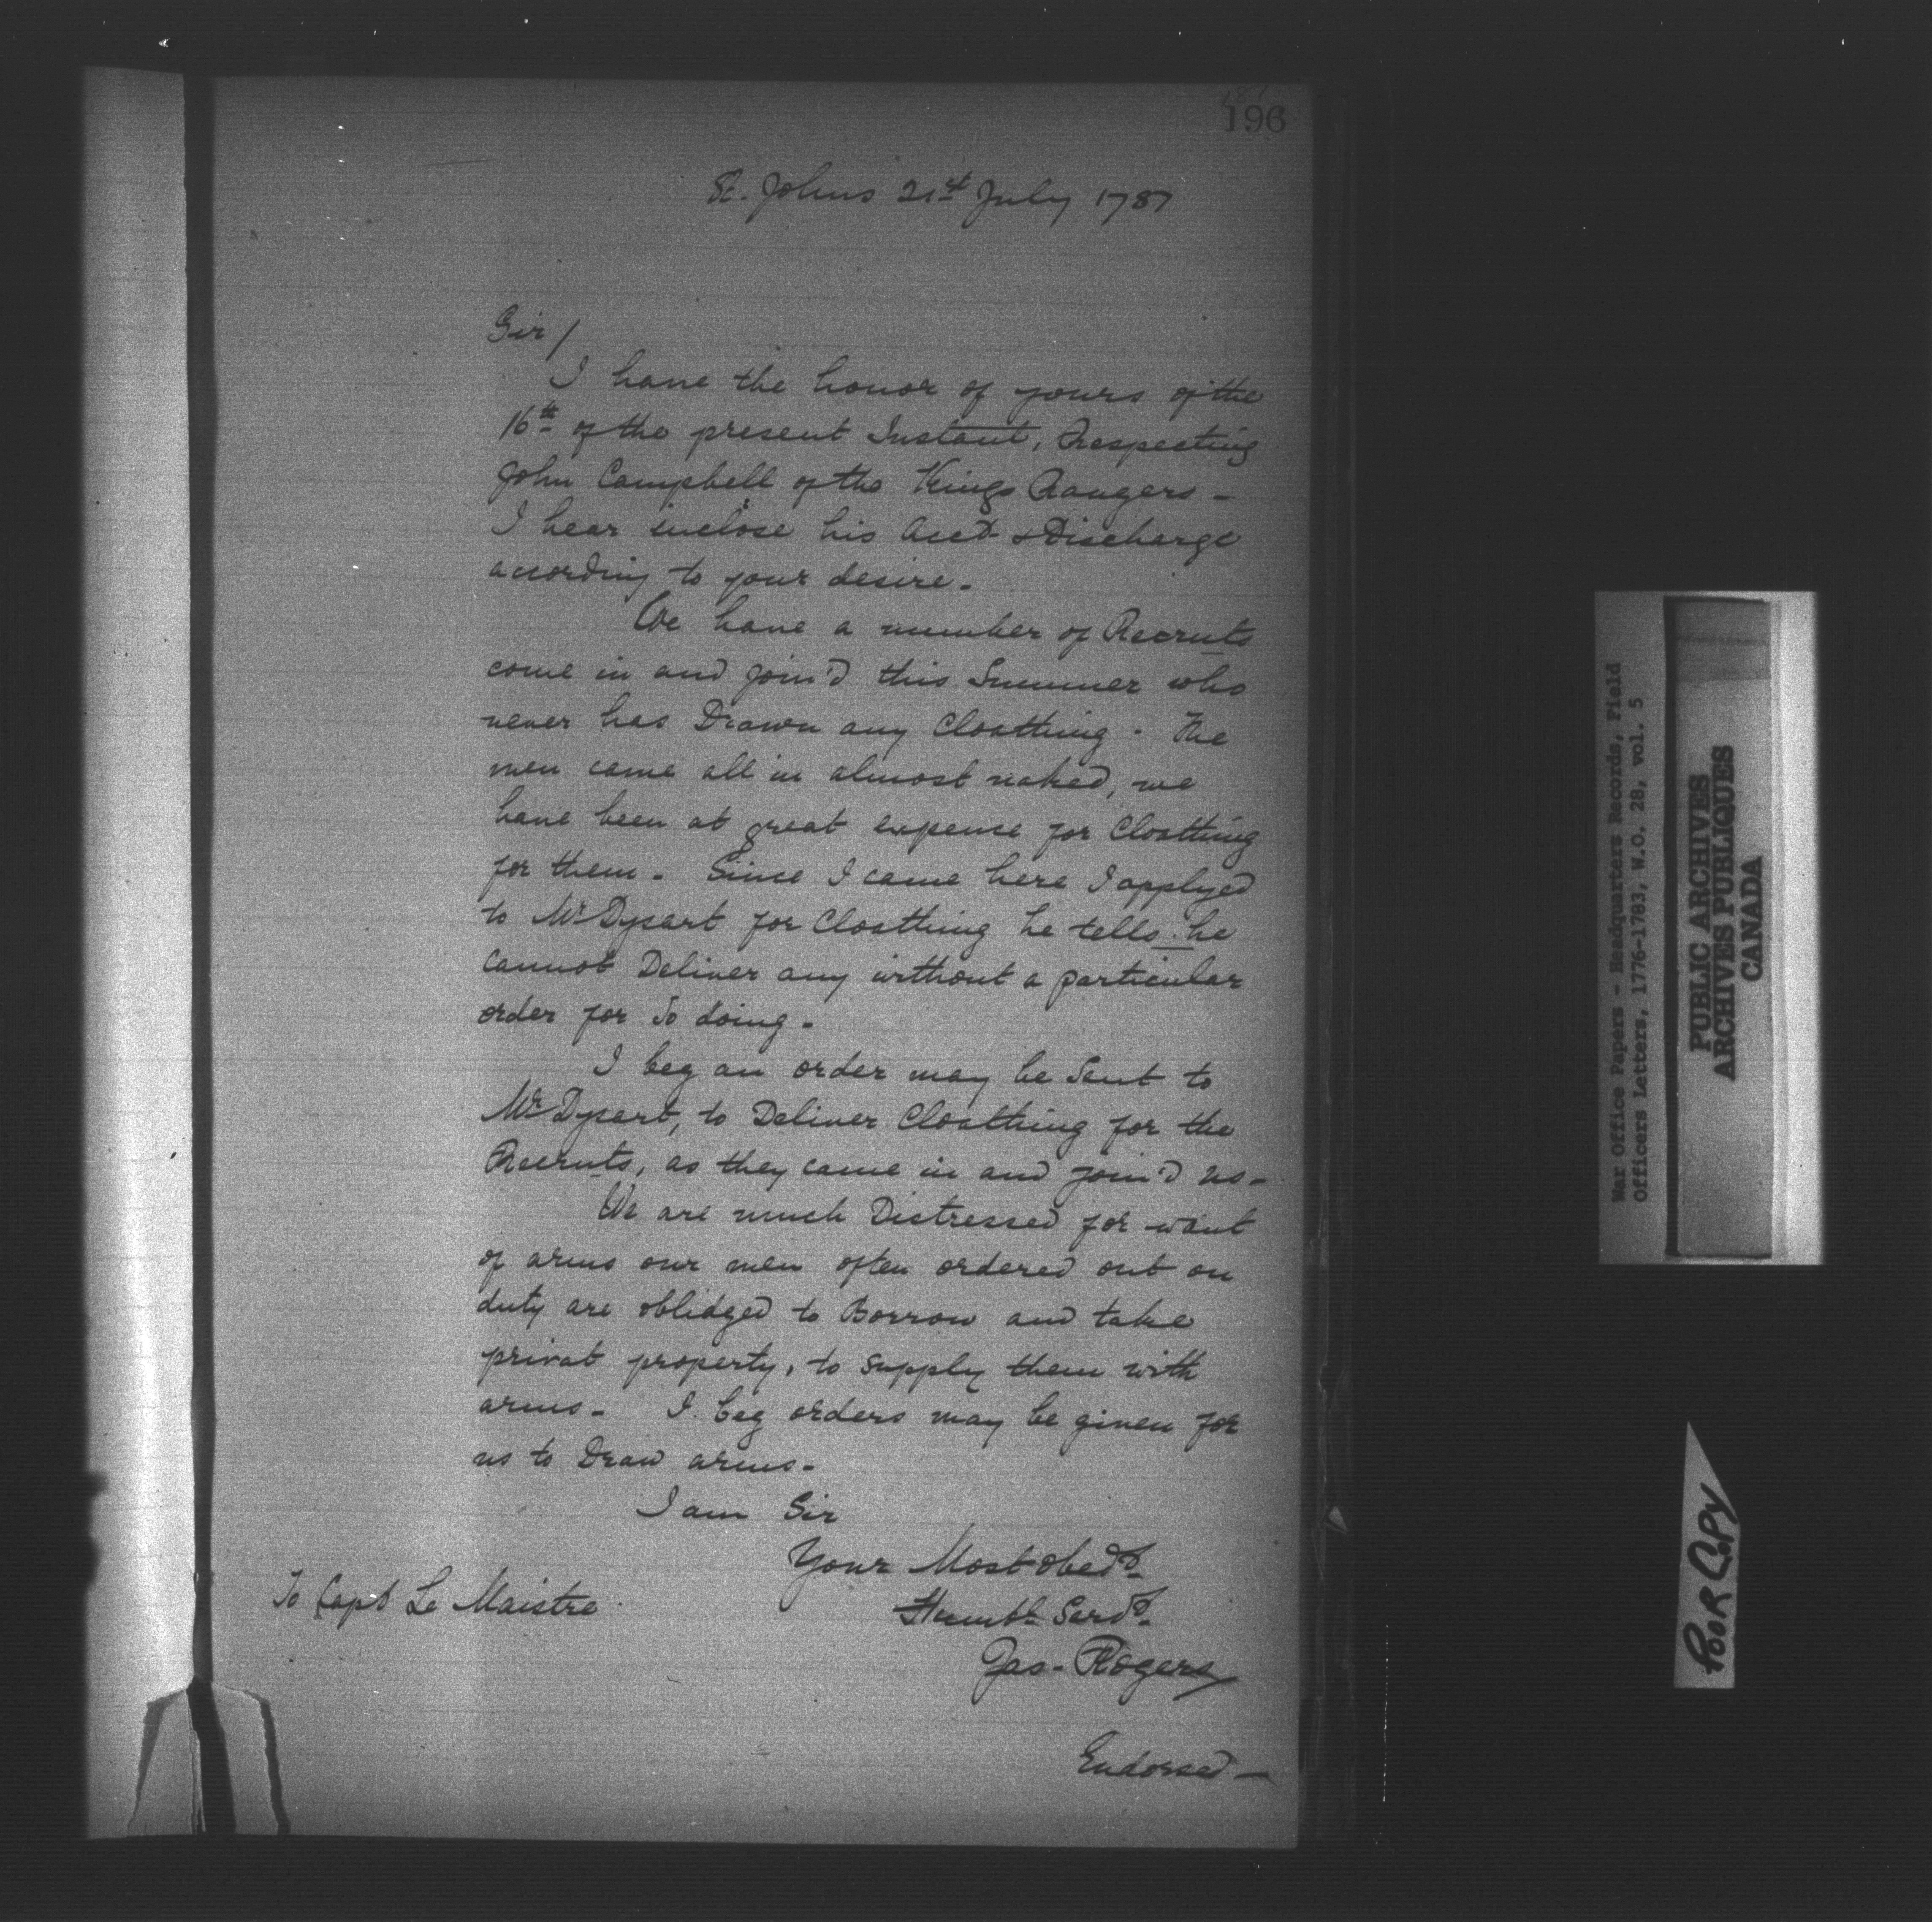 196
St. Johns 21st July 1781
Sir /
I have the honor of yours of the
16th of the present Instant, Respecting
John Campbell of the Kings Rangers -
I hear inclose his Acct & Discharge
according to your desire.
We have a number of Recruts
come in and join'd this Summer who
never has Drawn any Cloathing. The
men came all in almost naked, we
have been at great expence for Cloathing
for them. Since I came here I applyed
to Mr Dysart for Cloathing he tells he
cannot Deliver any without a particular
order for So doing.
I beg an order may be Sent to
Mr Dysart, to Deliver Cloathing for the
Recruts, as they came in and join'd us -
We are much Distressed for want
of arms our men often ordered out on
duty are oblidged to Borrow and take
privat property, to Supply them with
arms. I beg orders may be given for
us to Draw arms.
I am Sir
Your Most obedt
Humble Servt
Jas. Rogers
To Capt Le Maistre
Endorsed —
War Office Papers - Headquarters Records, Field
Officers Letters, 1776-1783, W.O. 28, vol. 5
PUBLIC ARCHIVES
ARCHIVES PUBLIQUES
CANADA
POOR COPY